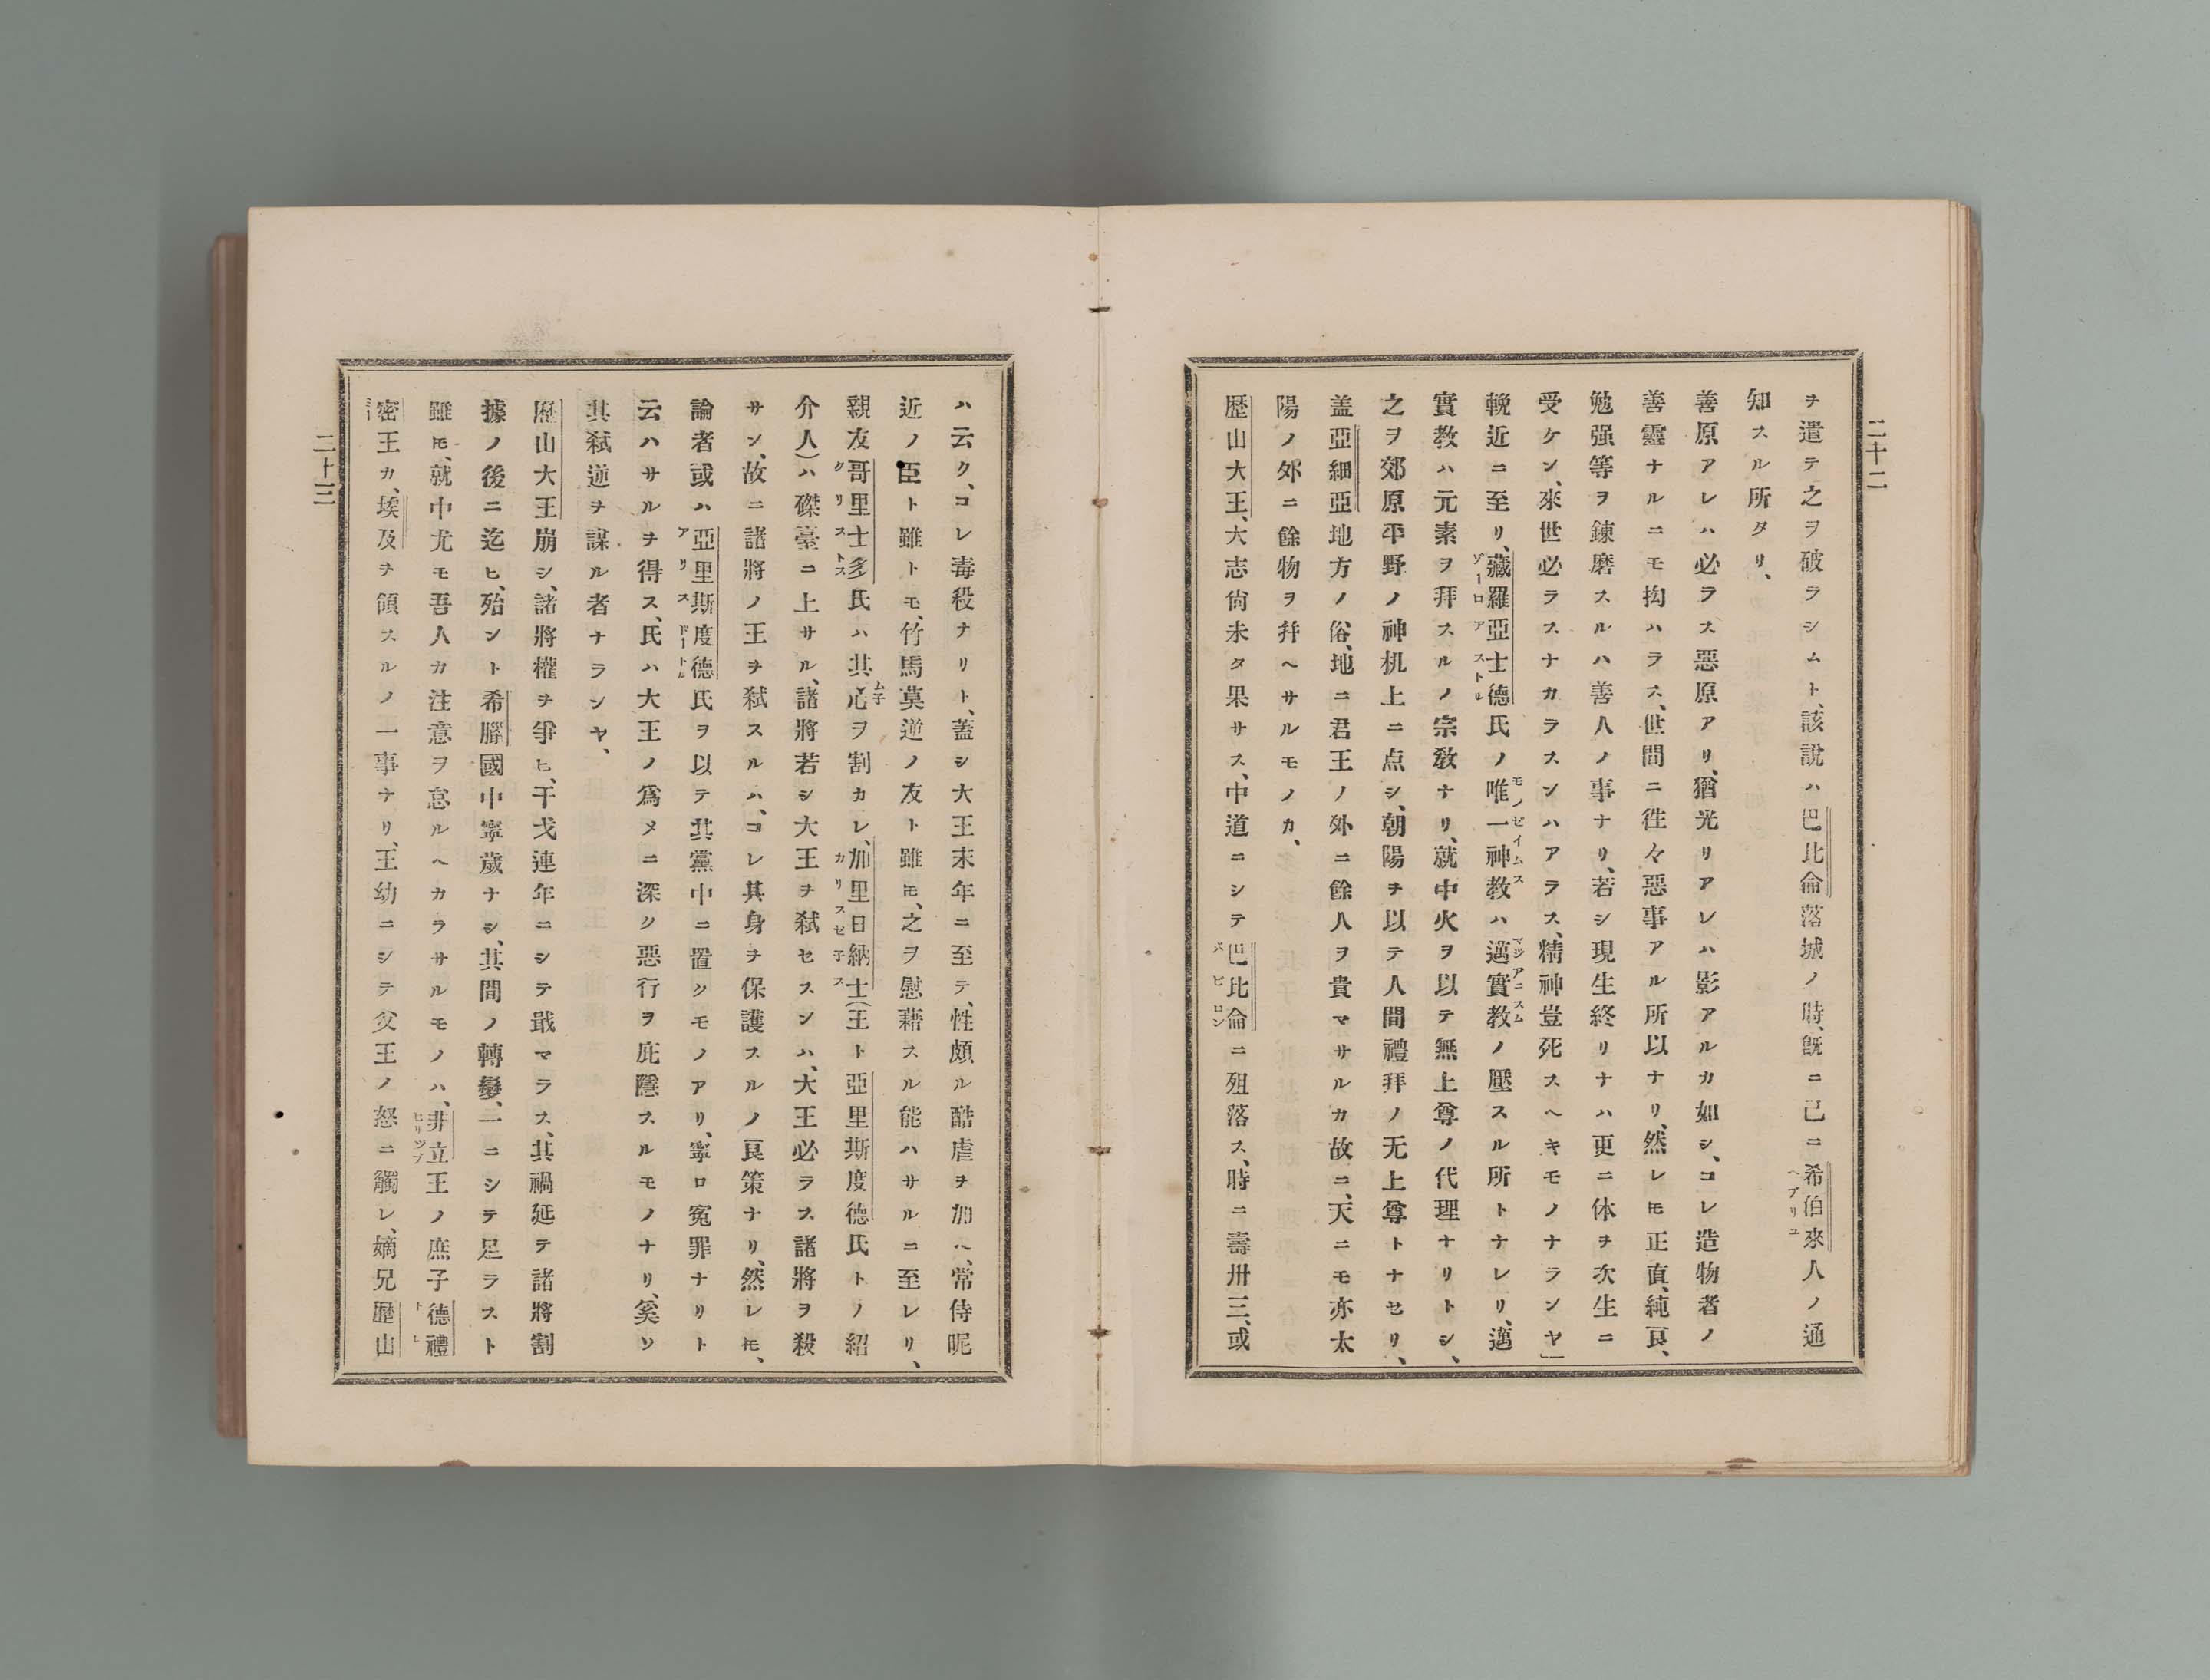 二十二
ヲ遣テ之ヲ破ラシムト、該説ハ巴比侖落城ノ時、既ニ已ニ希伯來人ノ通
知スル所タリ、
善原アレハ必ラス惡原アリ、猶光リアレハ影アルカ如シ、コレ造物者ノ
善靈ナルニモ拘ハラス、世間ニ徃々惡事アル所以ナリ、然レ𪜈正直、純良、
勉强等ヲ鍊磨スルハ善人ノ事ナリ、若シ現生終リナハ更ニ休ヲ次生ニ
受ケン、來世必ラスナカラスンハアラス、精神豈死スヘキモノナランヤ」
輓近ニ至リ、藏羅亞士德氏ノ唯一神教ハ邁實教ノ壓スル所トナレリ、邁
實教ハ元素ヲ拜スルノ宗教ナリ、就中火ヲ以テ無上尊ノ代理ナリトシ、
之ヲ郊原平野ノ神机上ニ点シ、朝陽ヲ以テ人間禮拜ノ无上尊トナセリ、
盖亞細亞地方ノ俗、地ニ君王ノ外ニ餘人ヲ貴マサルカ故ニ、天ニモ亦太
陽ノ外ニ餘物ヲ幷ヘサルモノカ、
歷山大王、大志尙未タ果サス、中道ニシテ巴比侖ニ殂落ス、時ニ壽卅三、或
ハ云ク、コレ毒殺ナリト、蓋シ大王末年ニ至テ、性頗ル酷虐ヲ加ヘ、常侍昵
近ノ臣ト雖トモ、竹馬莫逆ノ友ト雖𪜈、之ヲ慰藉スル能ハサルニ至レリ、
親友哥里士多氏ハ其心ヲ割カレ、加里日納士(王ト亞里斯度德氏トノ紹
介人)ハ磔臺ニ上サル、諸將若シ大王ヲ弑セスンハ、大王必ラス諸將ヲ殺
サン、故ニ諸將ノ王ヲ弑スルハ、コレ其身ヲ保護スルノ良策ナリ、然レ𪜈、
論者或ハ亞里斯度德氏ヲ以テ其黨中ニ置クモノアリ、寧ロ寃罪ナリト
云ハサルヲ得ス、氏ハ大王ノ爲メニ深ク惡行ヲ庇隱スルモノナリ、奚ソ
其弑逆ヲ謀ル者ナランヤ、
歷山大王崩シ、諸將權ヲ爭ヒ、干戈連年ニシテ戢マラス、其禍延テ諸將割
據ノ後ニ迄ヒ、殆ント希臘國中寧歲ナシ、其間ノ轉變、一ニシテ足ラスト
雖𪜈、就中尤モ吾人カ注意ヲ怠ルヘカラサルモノハ、非立王ノ庶子德禮
密王カ、埃及ヲ領スルノ一事ナリ、王幼ニシテ父王ノ怒ニ觸レ、嫡兄歷山
二十三